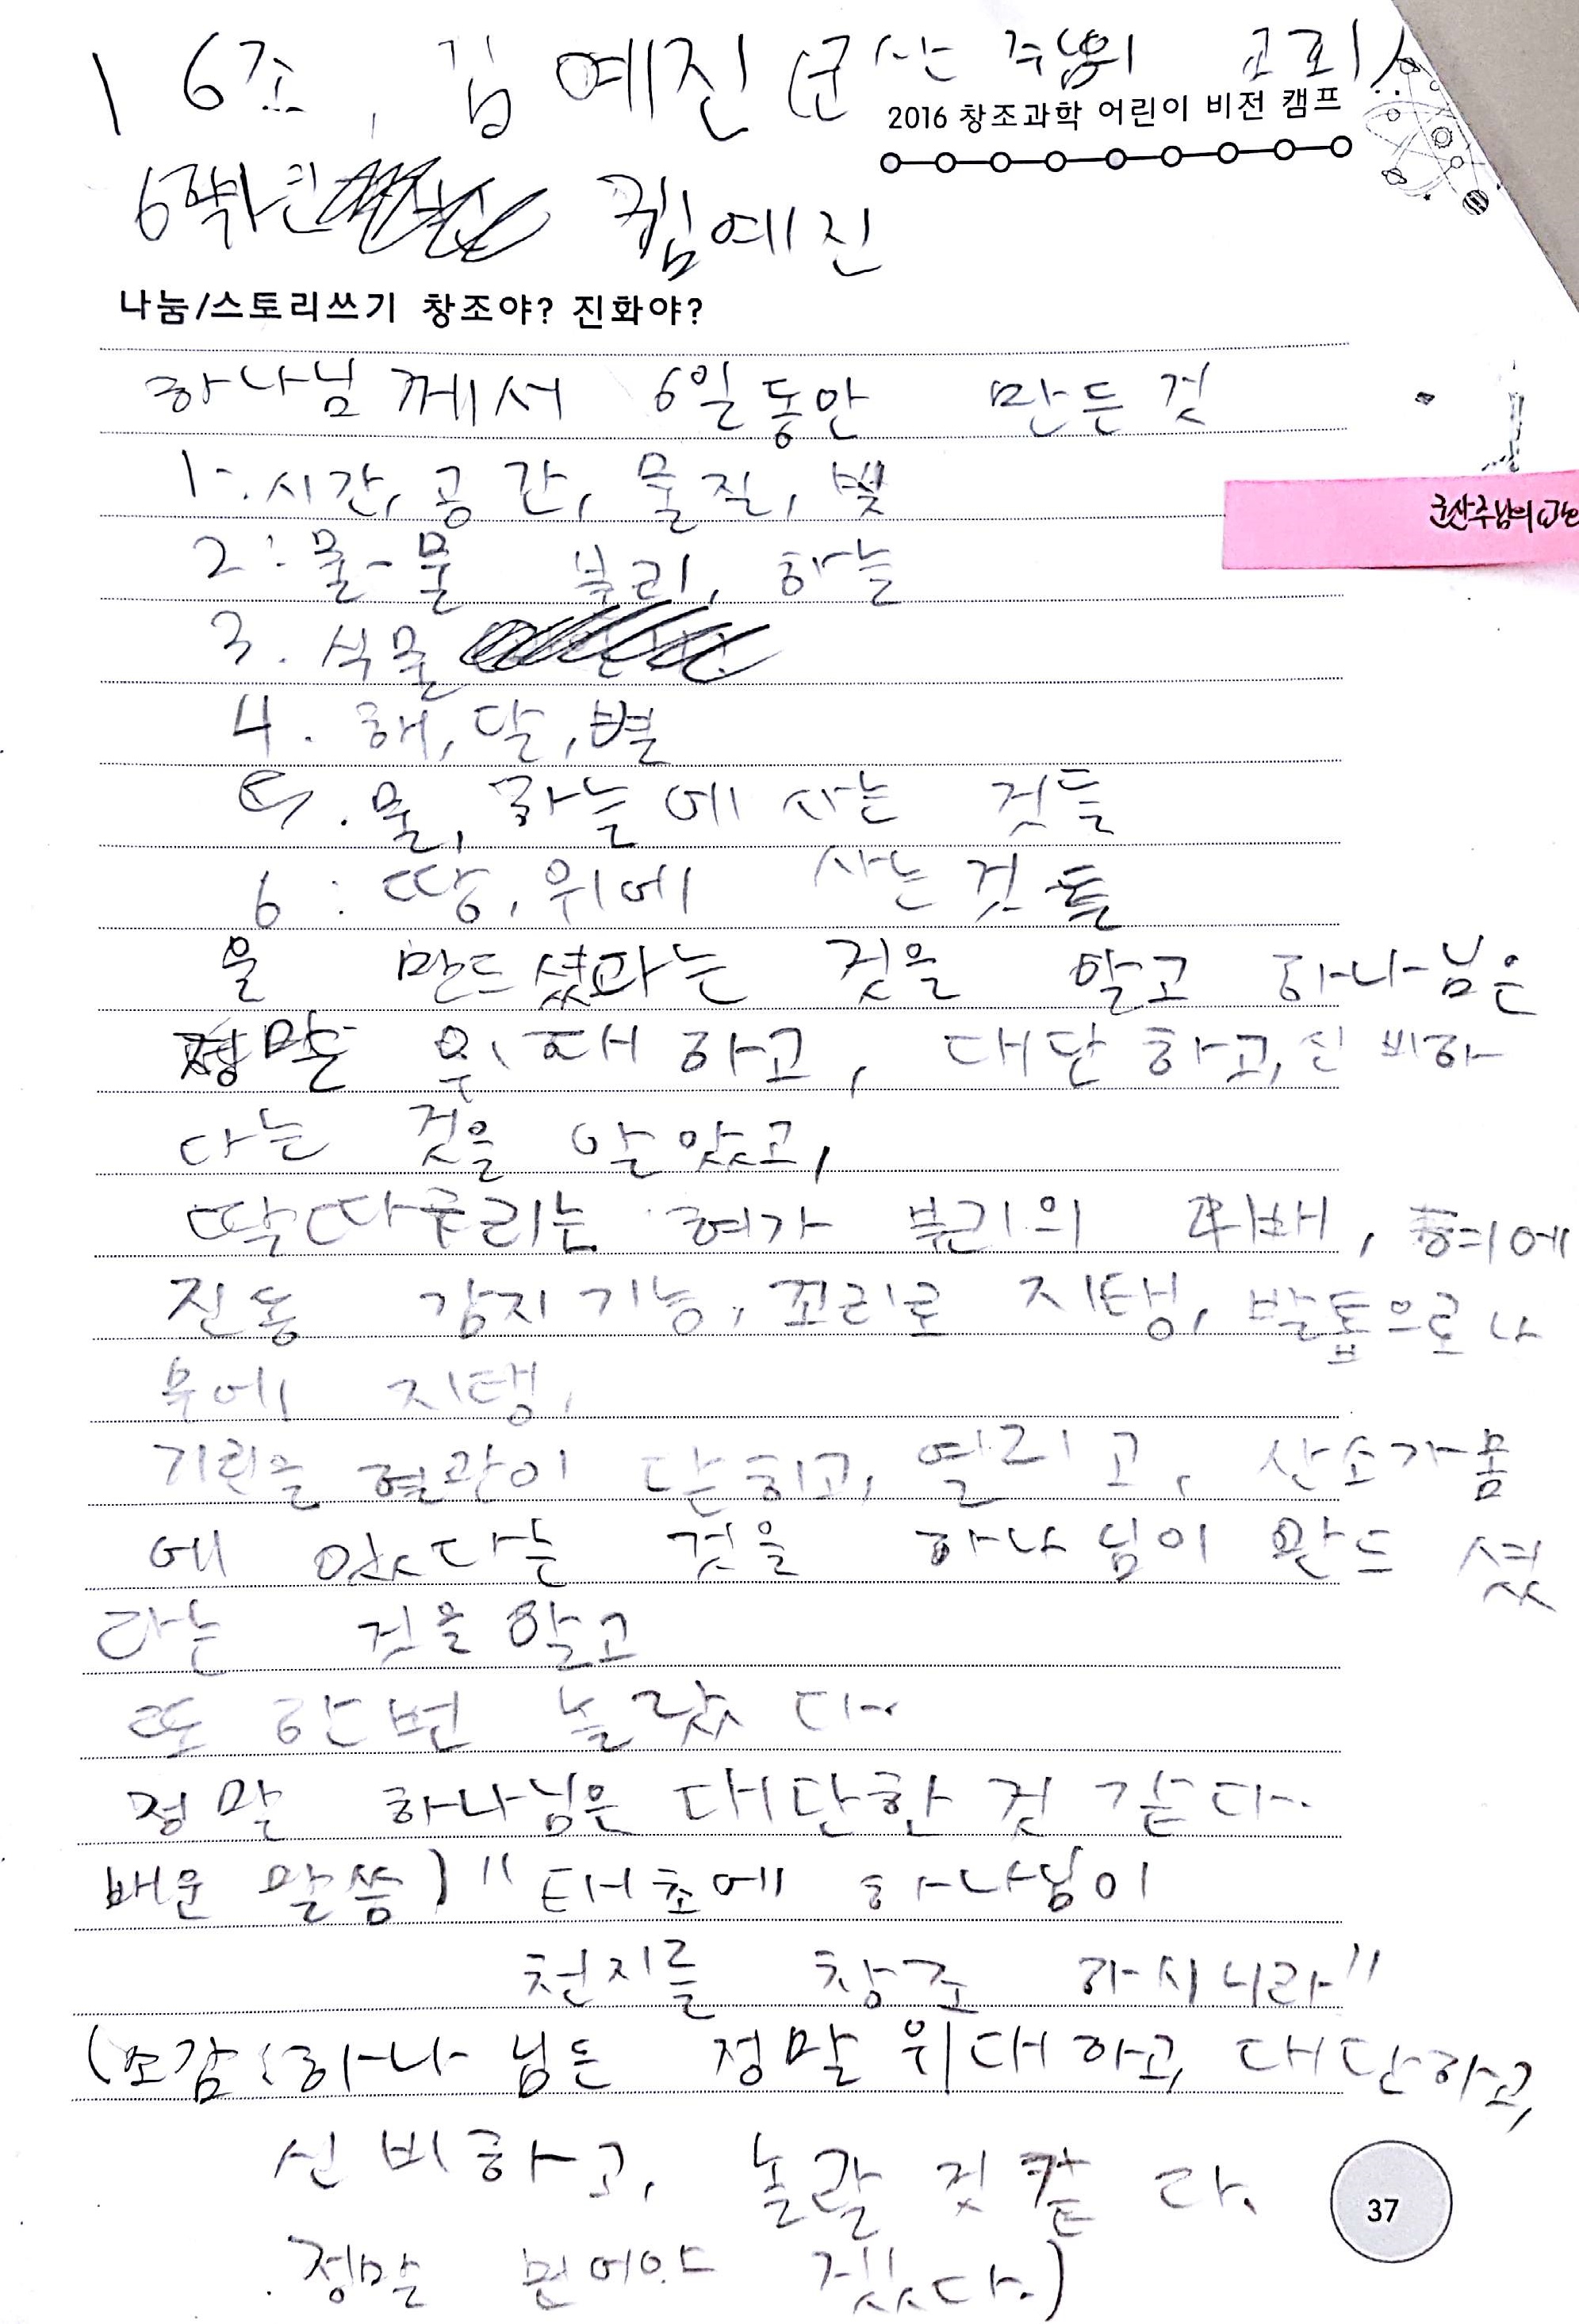 16조, 김예진 (군산 주님의 교회)
2016 창조과학 어린이 비전 캠프
6학년 김예진
나눔/스토리쓰기 창조야? 진화야?
하나님께서 6일동안 만든것
1:. 시간, 공간, 물질, 빛
군산주님의교회
2: 물-물 분리, 하늘
3. 식물
4. 해, 달, 별
5. 물, 하늘에 사는 것들
6: 땅, 위에 사는것들
을 만드셨다는 것을 알고 하나님은
정말 위대하고, 대단하고, 신비하
다는 것을 알았고,
딱따구리는 혀가 부리의 4배, 혀에
진동 감지기능, 꼬리로 지탱, 발톱으로 나
무에 지탱,
기린을 혈관이 닫히고, 열리고, 산소가 몸
에 있다는 것을 하나님이 만드셨
다는 것을 알고
또 한번 놀랐다.
정말 하나님은 대단한 것 같다.
배운 말씀) "태초에 하나님이
천지를 창조 하시니라"
(소감 : 하나님은 정말 위대하고, 대단하고,
신비하고, 놀랄 것 같다.
정말 믿어야 겠다.)
37